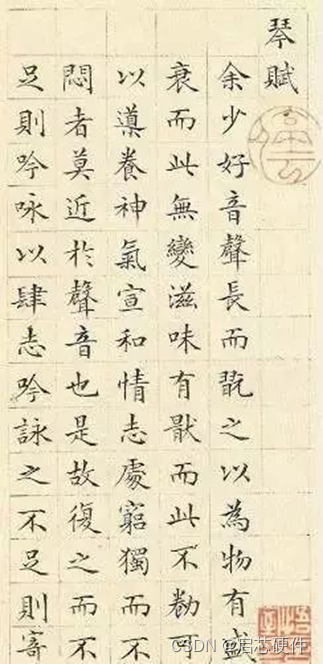 琴賦
余少好音聲長而翫之以為物有盛
衰而此無變滋味有猒而此不勌可
以導養神氣宣和情志處窮獨而不
悶者莫近於聲音也是故復之而不
足則吟咏以肆志吟詠之不足則寄
CSDN @启芯硬件